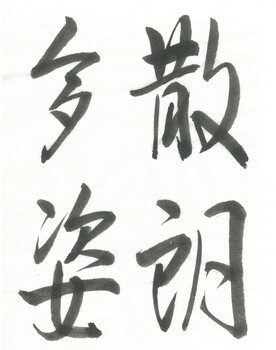 散朗
多姿